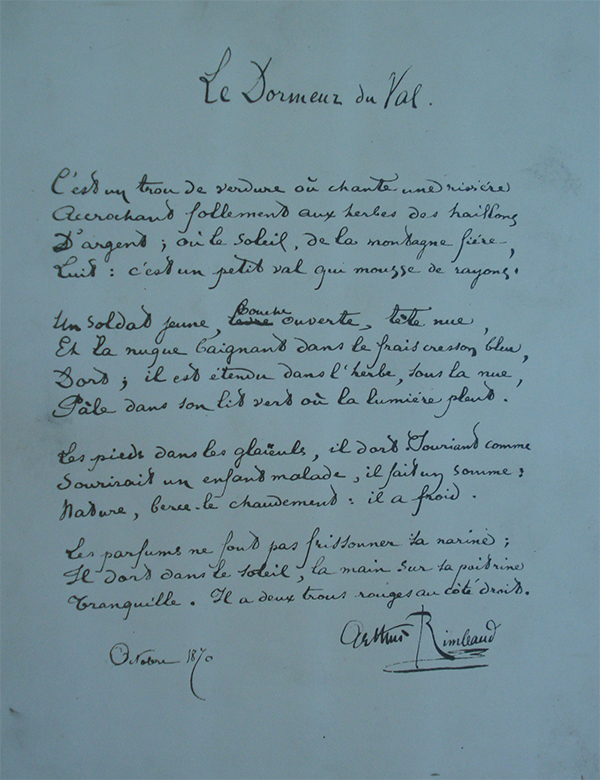 Le Dormeur du Val.
C'est un trou de verdure où chante une rivière
Accrochant follement aux herbes des haillons
D'argent ; où le soleil, de la montagne fière,
Luit : c'est un petit val qui mousse de rayons.
Un soldat jeune, lèvre bouche ouverte, tête nue,
Et la nuque baignant dans le frais cresson bleu,
Dort ; il est étendu dans l'herbe, sous la nue,
Pâle dans son lit vert où la lumière pleut.
Les pieds dans les glaïeuls, il dort. Souriant comme
Sourirait un enfant malade, il fait un somme :
Nature, berce-le chaudement : il a froid.
Les parfums ne font pas frissonner sa narine ;
Il dort dans le soleil, la main sur sa poitrine
Tranquille. Il a deux trous rouges au côté droit.
Arthur Rimbaud
Octobre 1870